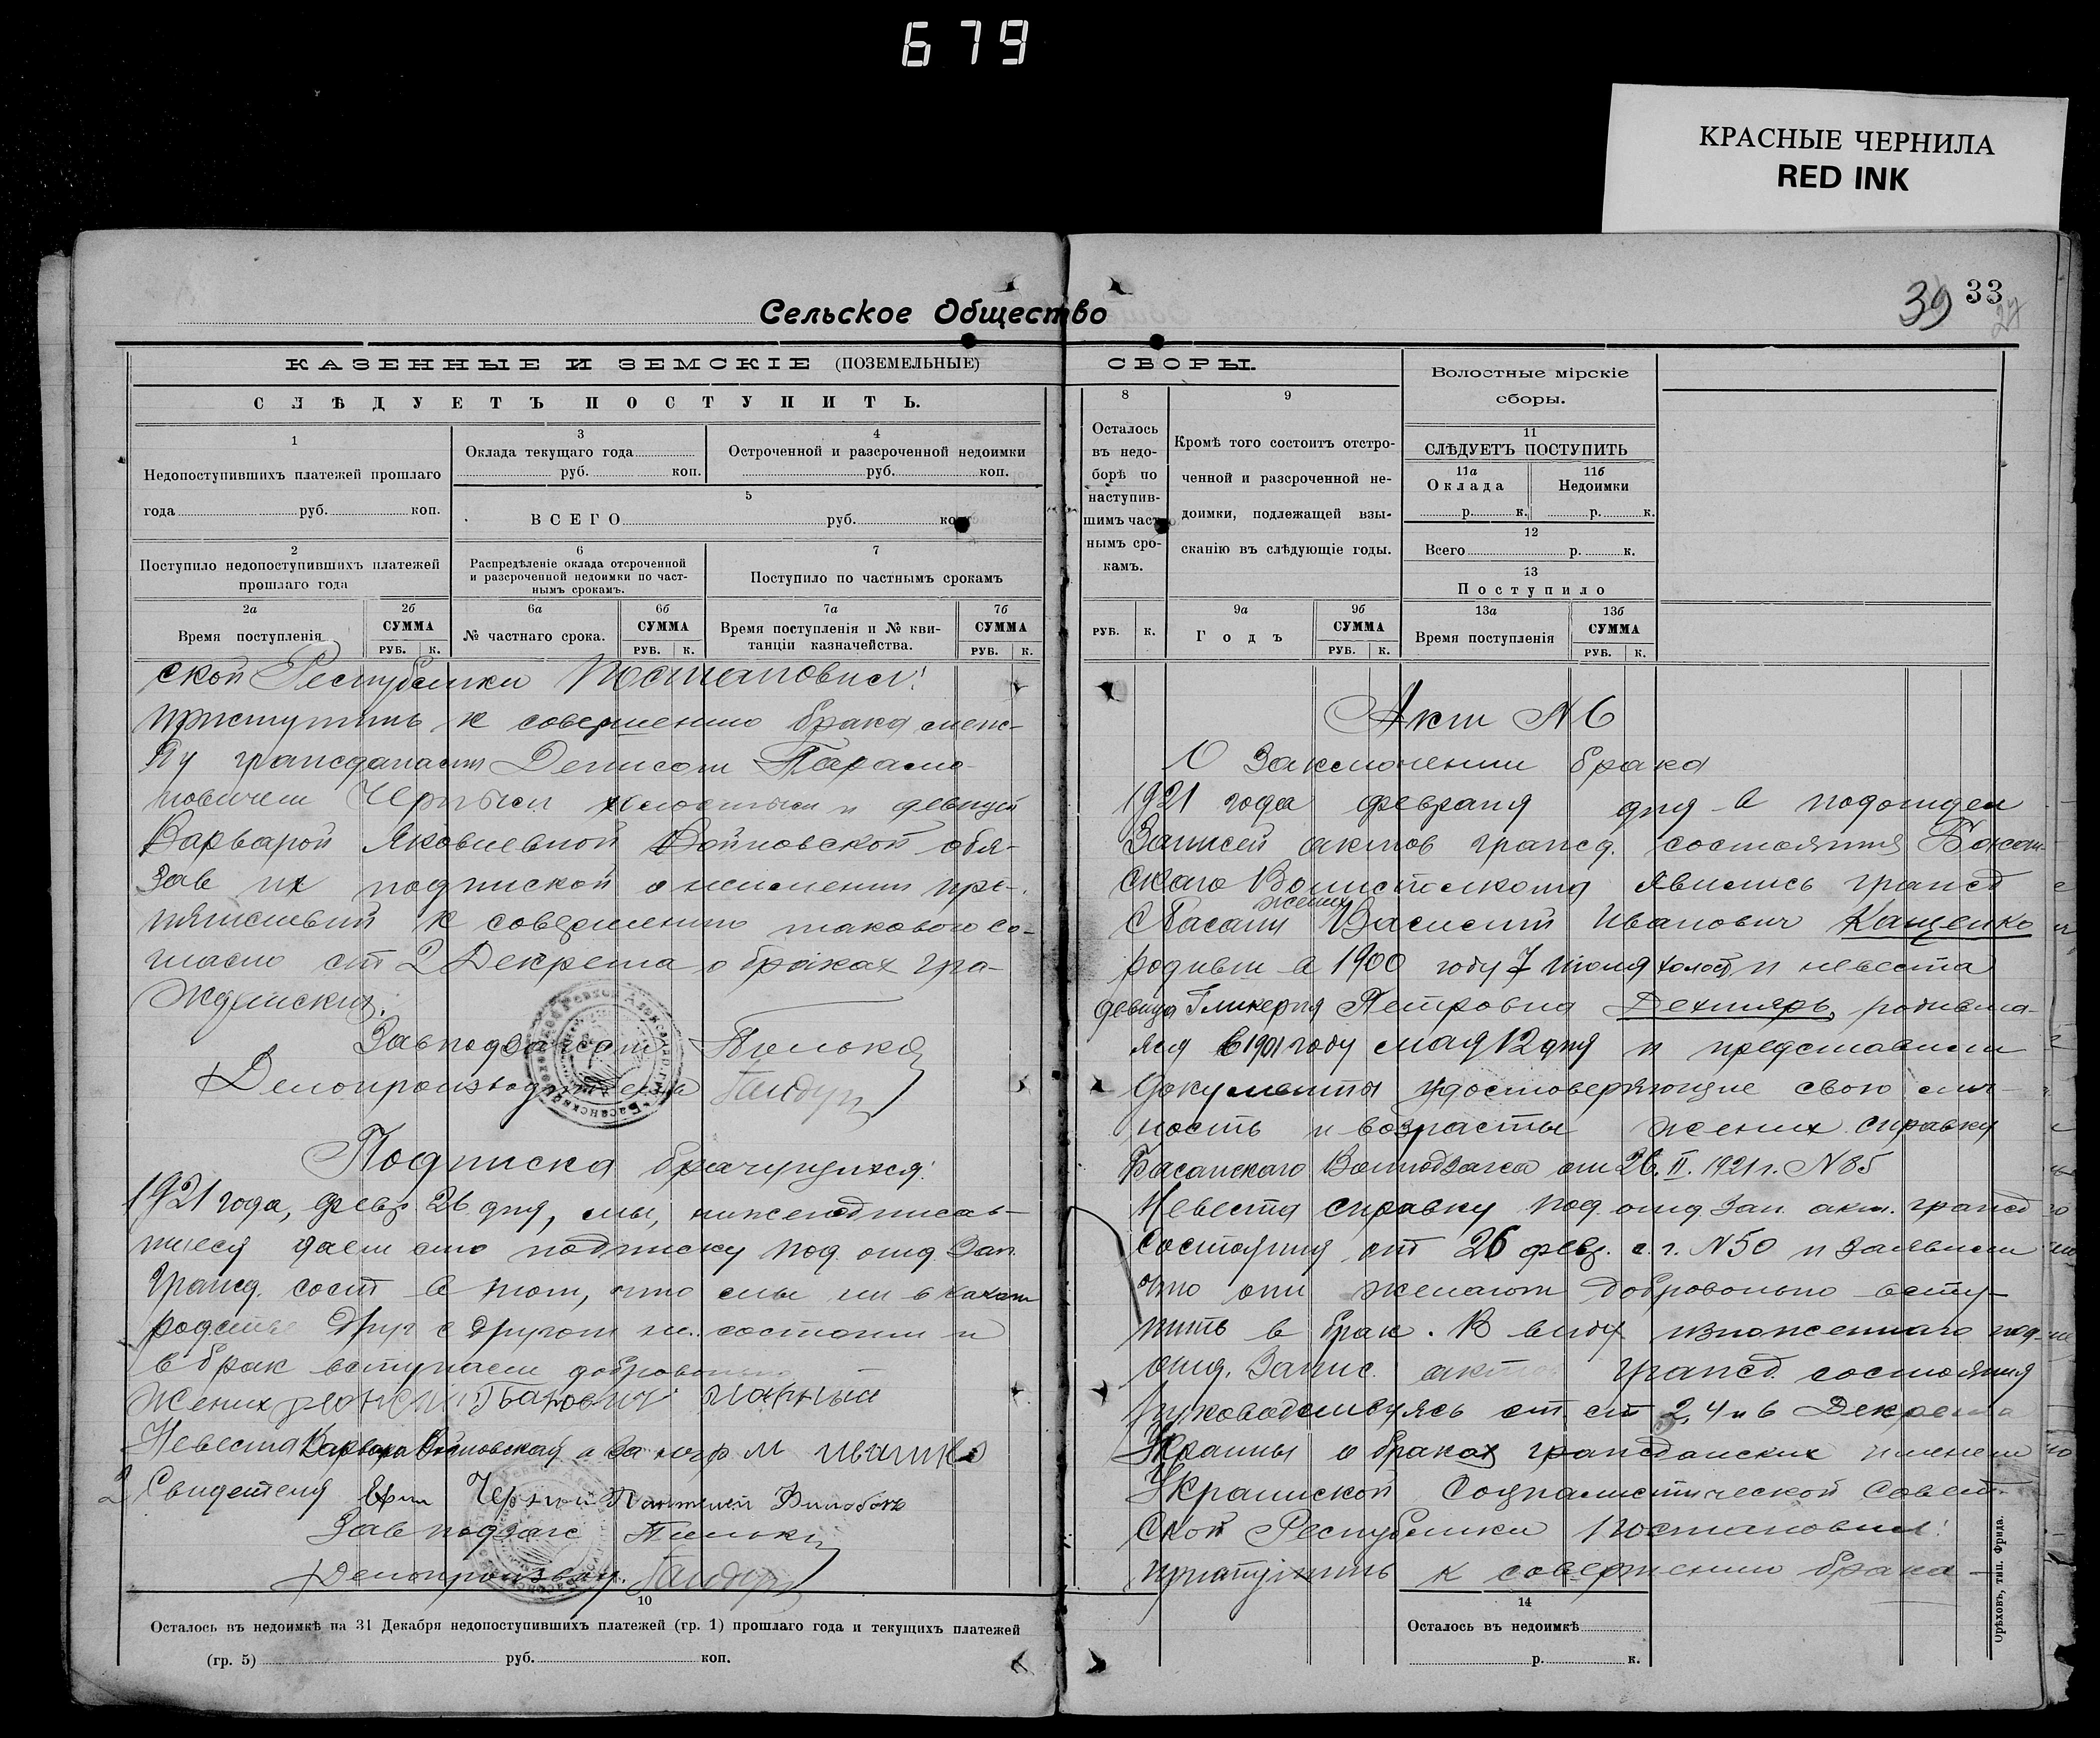 679
КРАСНЫЕ ЧЕРНИЛА
RED INK
39 33
27
Сельское Общество
КАЗЕННЫЕ И ЗЕМСКІЕ (ПОЗЕМЕЛЬНЫЕ) СБОРЫ.
СЛѢДУЕТЪ ПОСТУПИТЬ.
1
Недопоступившихъ платежей прошлаго
года руб. коп.
3
Оклада текущаго года
руб. коп.
4
Остроченной и разсроченной недоимки
руб. коп.
5
ВСЕГО руб. коп.
2
Поступило недопоступившихъ платежей
прошлаго года
6
Распредѣленіе оклада отсроченной
и разсроченной недоимки по част-
нымъ срокамъ.
7
Поступило по частнымъ срокамъ
2а
Время поступленія
2б
СУММА
РУБ. К.
6а
№ частнаго срока.
6б
СУММА
РУБ. К.
7а
Время поступленія и № кви-
танціи казначейства.
7б
СУММА
РУБ. К.
ской Республики Постановил:
приступить к совершению брака меж-
ду гражданами Денисом
Черным холостым и девицей
Варварой Яковлевной Войновской обя-
зав их подпиской о неимении пре-
пятствий к совершению такового со-
гласно ст 2 Декрета о браках гра-
жданских.
Завподзагсом
Делопроизводитель
Подписка брачущихся:
1921 года, февр. 26 дня, мы, нижеподписав-
шиеся даем сию подписку под. отд. Зап.
Гражд. сост в том, что мы ни в каком
родстве друг с другом не состоим и
в брак вступаем доброволь
Жених
Невеста Варвара Войновская
2 Свидетеля Черный Пантелей
Зав подзагс
Делопроизвод.
10
Осталось въ недоимкѣ на 31 Декабря недопоступившихъ платежей (гр. 1) прошлаго года и текущихъ платежей
(гр. 5) руб. коп.
8
Осталось
въ недо-
борѣ по
наступив-
шимъ част
нымъ сро-
камъ.
РУБ. К.
9
Кромѣ того состоитъ отстро-
ченной и разсроченной не-
доимки, подлежащей взы-
сканію въ слѣдующіе годы.
9а
Годъ
9б
СУММА
РУБ. К.
Волостные мірскіе
сборы.
11
СЛѢДУЕТЪ ПОСТУПИТЬ
11а
Оклада
р. к.
11б
Недоимки
р. к.
12
Всего р. к.
13
Поступило
13а
Время поступленія
13б
СУММА
РУБ. К.
Акт № 6
О Заключении брака
1921 года февраля дня в подотдел
Записей актов гражд. состояния Басан-
скаго явились гражд
жених
с Басани Василий Иванович Кащенко
родивш в 1900 году 7 июля холост и невеста
девица Гликерия Петровна Дехтярь, родивша-
яся в 1901 году мая 12 дня и представили
документы удостоверяющие свою лич-
ность и возрасты жених справку
Басанского Волподзагса от 26. II. 1921 г. № 85
Невеста справку под. отд. Зап. акт. гражд
состояния от 26 февр. с. г. № 50 и заявили
что они желают добровольно всту-
пить в брак. В виду изложенного под-
отд. Запис. актов гражд. состояния
руководствуясь ст. ст 2, 4 и 6 Декрета
Украины о браках гражданских именем
Украинской Социалистической Совет-
ской Республики Постановил:
приступить к совершению брака
14
Осталось въ недоимкѣ
р. к.
Орѣховъ, тип. Фрида.